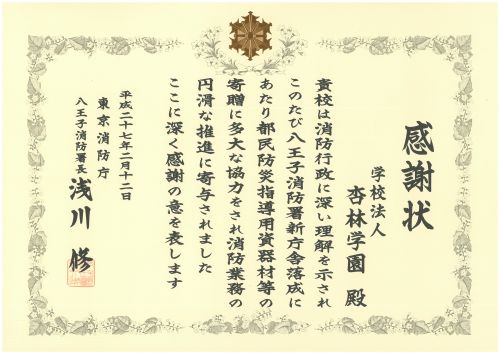 感謝状
学校法人
杏林学園 殿
貴校は消防行政に深い理解を示され
このたび八王子消防署新庁舎落成に
あたり都民防災指導用資器材等の
寄贈に多大な協力をされ消防業務の
円滑な推進に寄与されました
ここに深く感謝の意を表します
平成二十七年二月十二日
東京消防庁
八王子消防署長
浅川 修